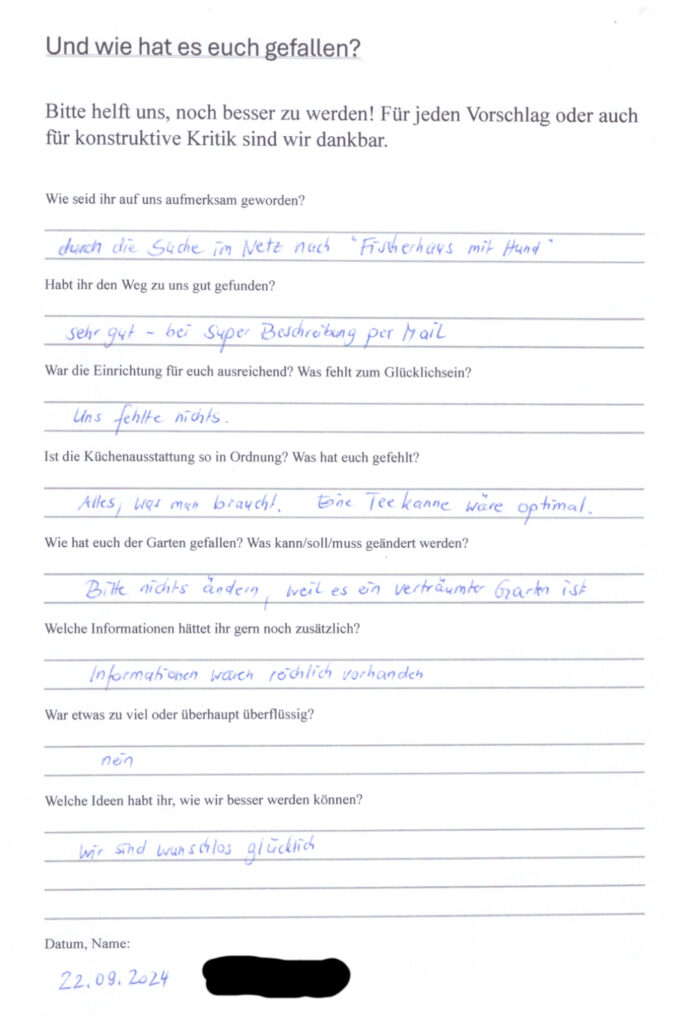 Und wie hat es euch gefallen?
Bitte helft uns, noch besser zu werden! Für jeden Vorschlag oder auch
für konstruktive Kritik sind wir dankbar.
Wie seid ihr auf uns aufmerksam geworden?
durch die Suche im Netz nach "Fischerhaus mit Hund"
Habt ihr den Weg zu uns gut gefunden?
sehr gut - bei super Beschreibung per Mail
War die Einrichtung für euch ausreichend? Was fehlt zum Glücklichsein?
Uns fehlte nichts.
Ist die Küchenausstattung so in Ordnung? Was hat euch gefehlt?
Alles, was man braucht. Eine Teekanne wäre optimal.
Wie hat euch der Garten gefallen? Was kann/soll/muss geändert werden?
Bitte nichts ändern, weil es ein verträumter Garten ist
Welche Informationen hättet ihr gern noch zusätzlich?
Informationen waren reichlich vorhanden
War etwas zu viel oder überhaupt überflüssig?
nein
Welche Ideen habt ihr, wie wir besser werden können?
wir sind wunschlos glücklich
Datum, Name:
22.09.2024